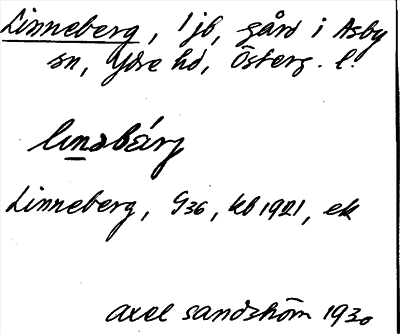 Linneberg, 1 jb, gård i Asby
sn, Ydre hd, Österg. l.
Linneberg, G36, kb 1921, ek
Axel Sandström 1930